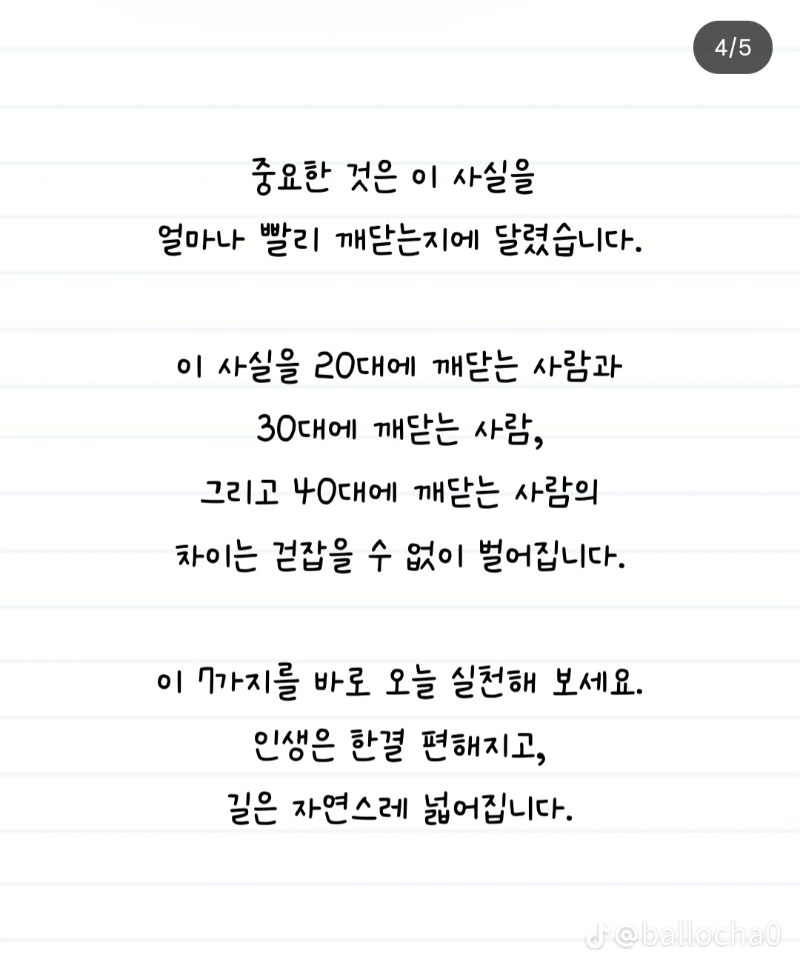 4/5
중요한 것은 이 사실을
얼마나 빨리 깨닫는지에 달렸습니다.
이 사실을 20대에 깨닫는 사람과
30대에 깨닫는 사람,
그리고 40대에 깨닫는 사람의
차이는 걷잡을 수 없이 벌어집니다.
이 7가지를 바로 오늘 실천해 보세요.
인생은 한결 편해지고,
길은 자연스레 넓어집니다.
@ballocha0